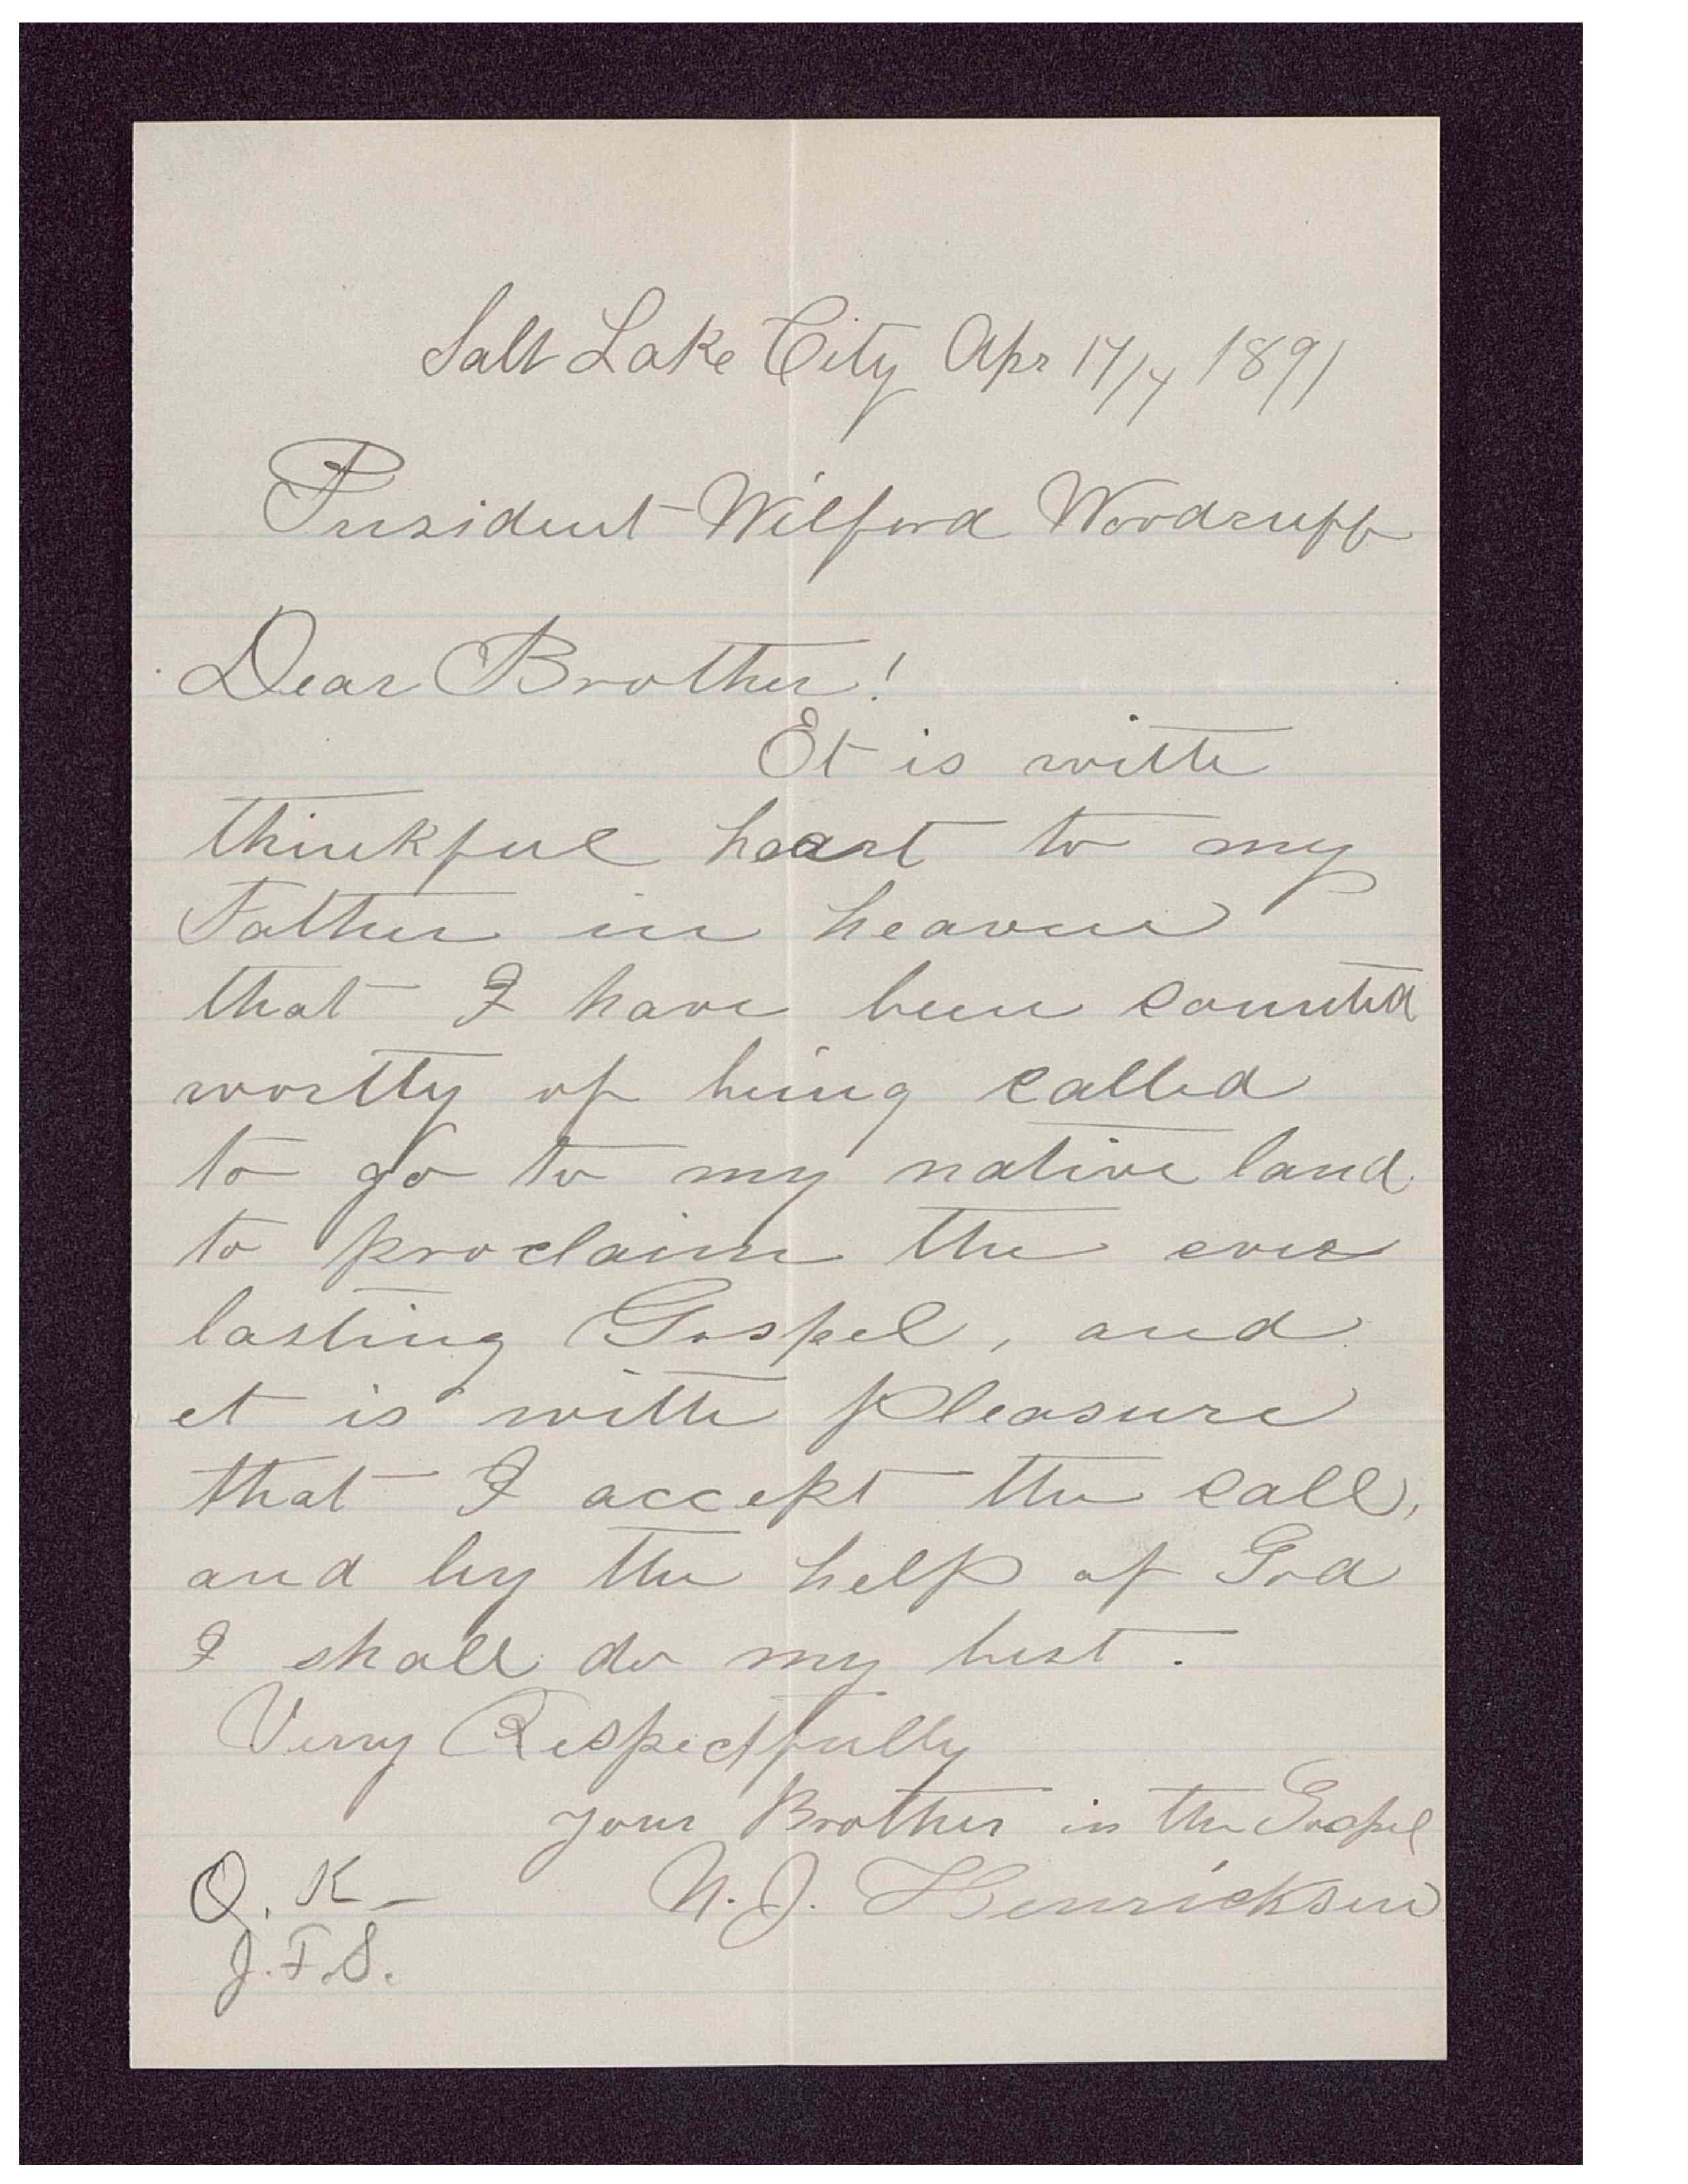 Salt Lake City Apr 17/4 1891
President Wilford Woodruff
Dear Brother!
Et is with
thinkful heart to my
Father in heaven
that I have been counted
worthy of being called
to go to my native land
to proclaim the ever
lasting Gospel, and
et is with pleasure
that I accept the call,
and by the help of God
I shall do my best.
Verry Respectfully
your Brother in the Gospel
N. J. Henricksen
O. K –
J. F. S.